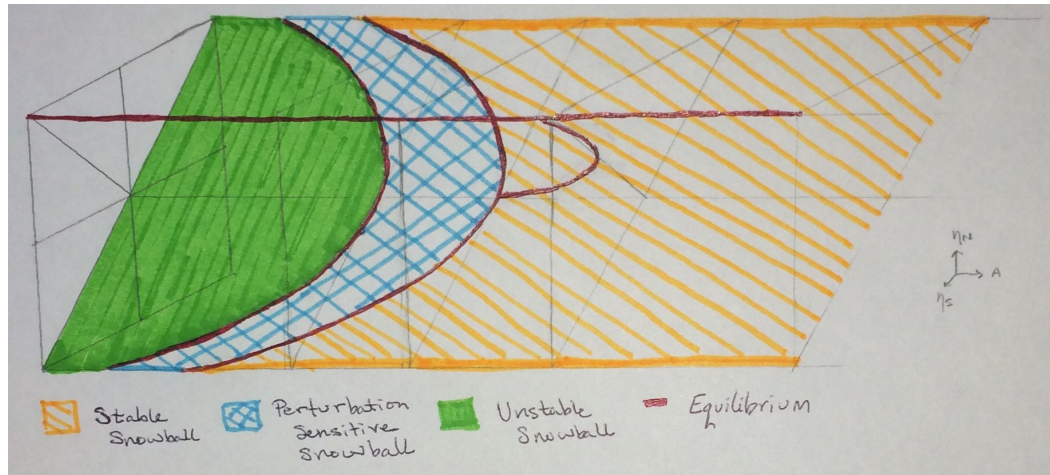 ηN
A
ηS
Stable
Snowball
Perturbation
Sensitive
Snowball
Unstable
Snowball
Equilibrium